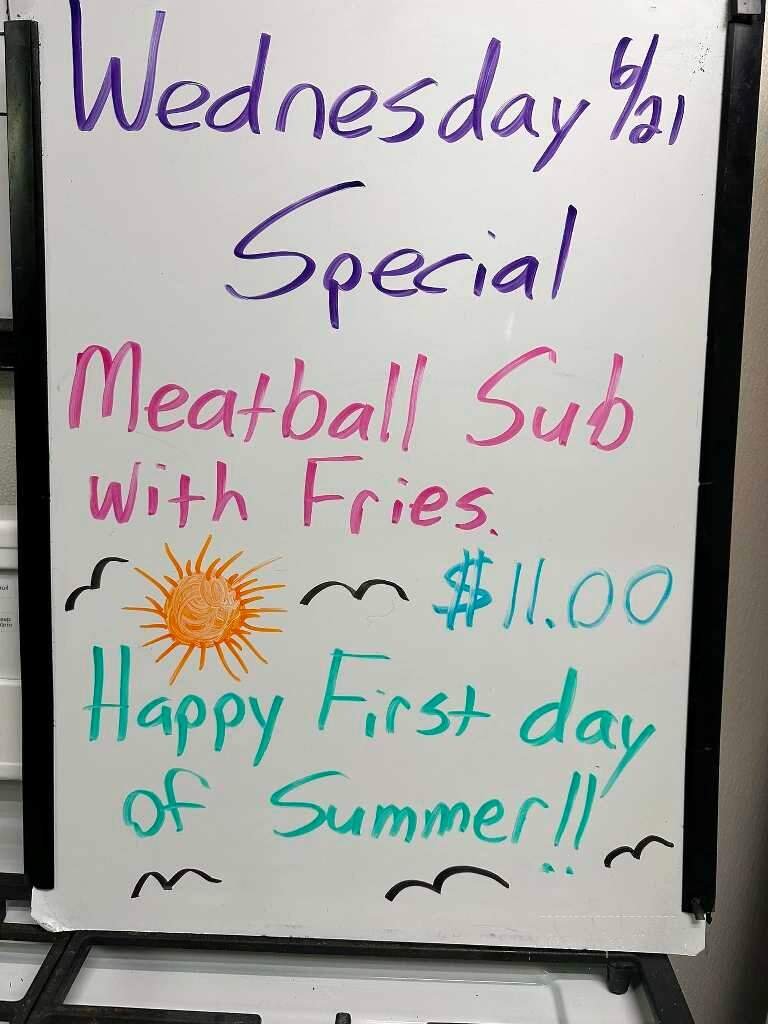 Wednesday 6/21
Special
Meatball Sub
with Fries.
$11.00
Happy First day
of Summer!!